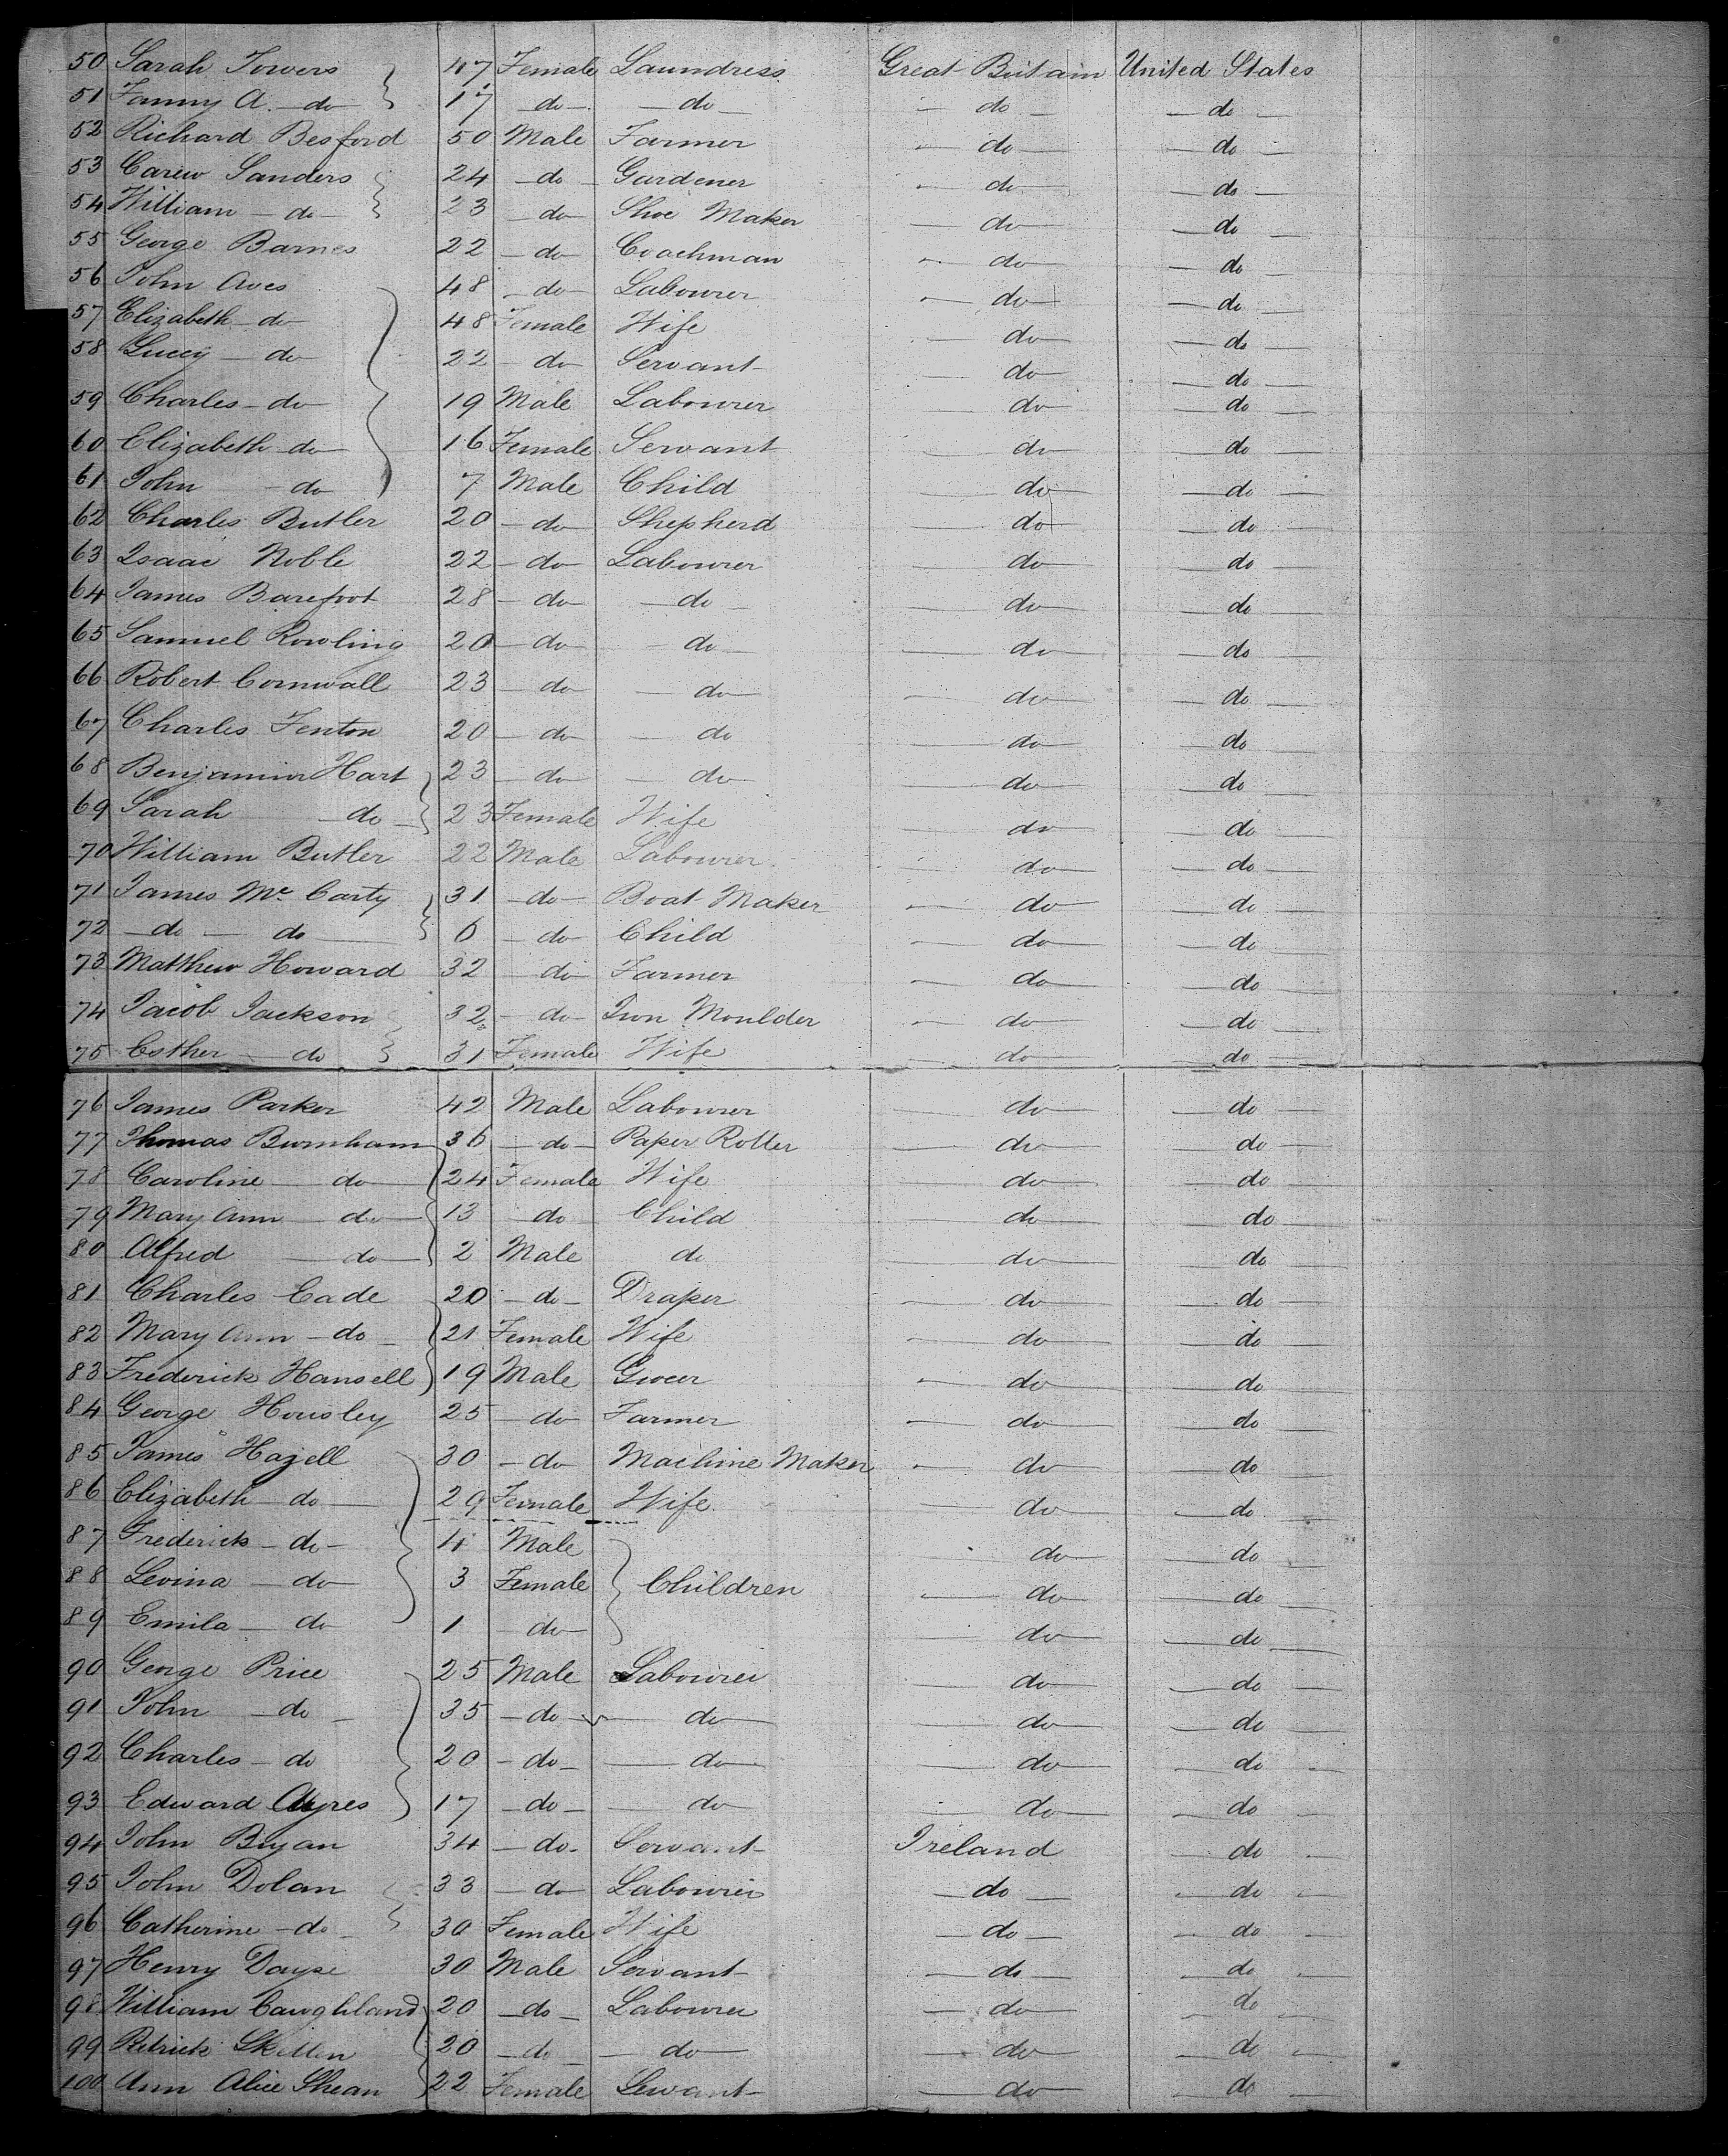 50 Sarah Towers 47 Female Laundress Great Britain United States
51 Fanny A. do 17 do do do do
52 Richard Besford 50 Male Farmer do do
53 Carew Sanders 24 do Gardener do do
54 William do 23 do Shoe Maker do do
55 George Barnes 22 do Coachman do do
56 John Aves 48 do Labourer do do
57 Elizabeth do 48 Female Wife do do
58 Lucy do 22 do Servant do do
59 Charles do 19 Male Labourer do do
60 Elizabeth do 16 Female Servant do do
61 John do 7 Male Child do do
62 Charles Butler 20 do Shepherd do do
63 Isaac Noble 22 do Labourer do do
64 James Barefoot 28 do do do do
65 Samuel Rowling 20 do do do do
66 Robert Cornwall 23 do do do do
67 Charles Fenton 20 do do do do
68 Benjamin Hart 23 do do do do
69 Sarah do 23 Female Wife do do
70 William Butler 22 Male Labourer do do
71 James Mc Carty 31 do Boat Maker do do
72 do do 6 do Child do do
73 Matthew Howard 32 do Farmer do do
74 Jacob Jackson 32 do Iron Moulder do do
75 Esther do 31 Female Wife do do
76 James Parker 42 Male Labourer do do
77 Thomas Burnham 36 do Paper Rotter do do
78 Caroline do 24 Female Wife do do
79 Mary Ann do 13 do Child do do
80 Alfred do 2 Male do do do
81 Charles Cade 20 do Draper do do
82 Mary Ann do 21 Female Wife do do
83 Frederick Hansell 19 Male Grocer do do
84 George Housley 25 do Farmer do do
85 James Hazell 30 do Machine Maker do do
86 Elizabeth do 29 Female Wife do do
87 Frederick do 4 Male do do
88 Levina do 3 Female Children do do
89 Emila do 1 do do do
90 George Price 25 Male Labourer do do
91 John do 35 do do do do
92 Charles do 20 do do do do
93 Edward Ayres 17 do do do do
94 John Bryan 34 do Servant Ireland do
95 John Dolan 33 do Labourer do do
96 Catherine do 30 Female Wife do do
97 Henry 30 Male Servant do do
98 William Caughland 20 do Labourer do do
99 20 do do do do
100 Ann Alice Shean 22 Female Servant do do